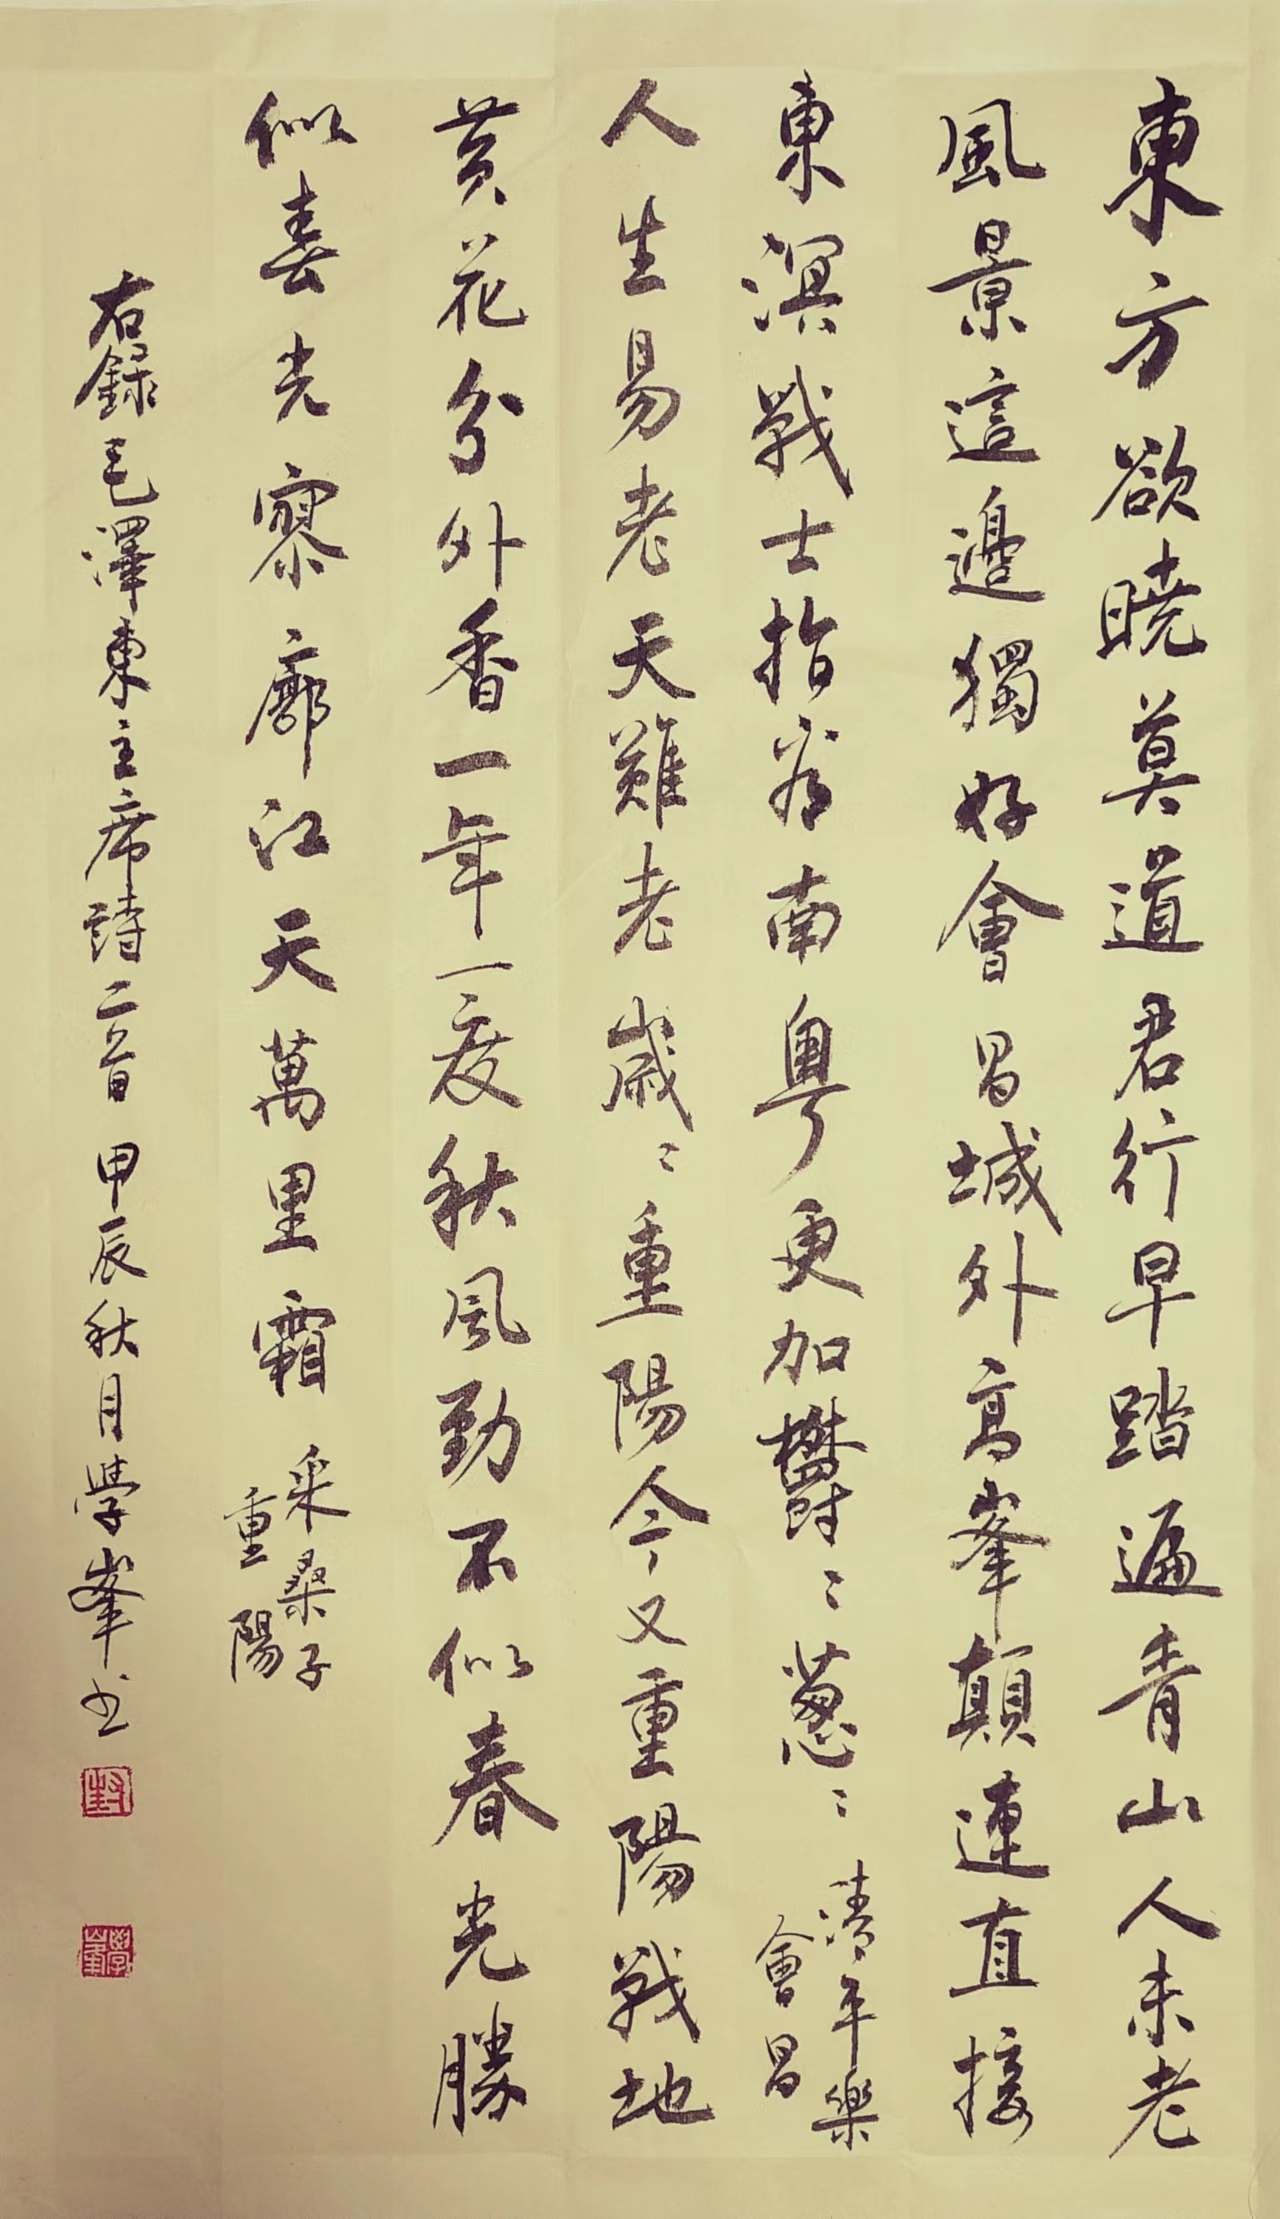 東方欲曉莫道君行早踏遍青山人未老
風景這邊獨好會昌城外高峯顛連直接
東溟戰士指看南粵更加鬱〻蔥〻
清平樂
會昌
人生易老天難老歲〻重陽今又重陽戰地
黃花分外香一年一度秋風勁不似春光勝
似春光寥廓江天萬里霜
采桑子
重陽
右錄毛澤東主席詩二首甲辰秋月學峯书
封
學峯